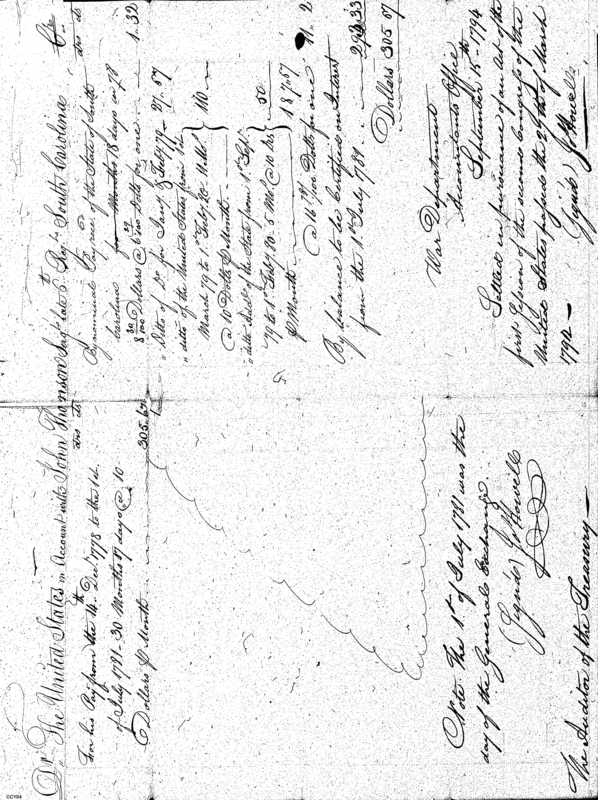 Dr. The United States in Account with John Thomson Sergt. late 6th Regt. South Carolina Cr.
dns cts
For his Pay from the 14th Decr. 1778 to the 1st.
of July 1781 - 30 Months 17 days @ 10
Dollars P Month 305.67
Note. The 1st of July 1781 was the
day of the General Exchange
(Signed) J Howell
The Auditor of the Treasury
dns cts
By nominal Pay rec'd of the State of South
Carolina for Months 18 days in 78
Dollars @ for one 1.32
" Ditto of Do for Jany. & Feby 1779 27.67
" ditto of the United States from 1st.
March 79 to 1st Feby 80
@ 10 Dolls P Month 110
" ditto of the State from 1st Septr.
79 to 1st Feby 80. 5 Mos. @ 10 Drs
P Month 50
187.67
@ Dolls for one 11.. 2
By balance to be Certified on Interest
from the 1st July 1781 293.33
Dollars 305 67
War Department
Accountants Office
September 15th 1794
Settled in pursuance of an Act of the
first Session of the second Congress of the
United States passed the 27th of March
1792 -
Signed J Howell
CCY04